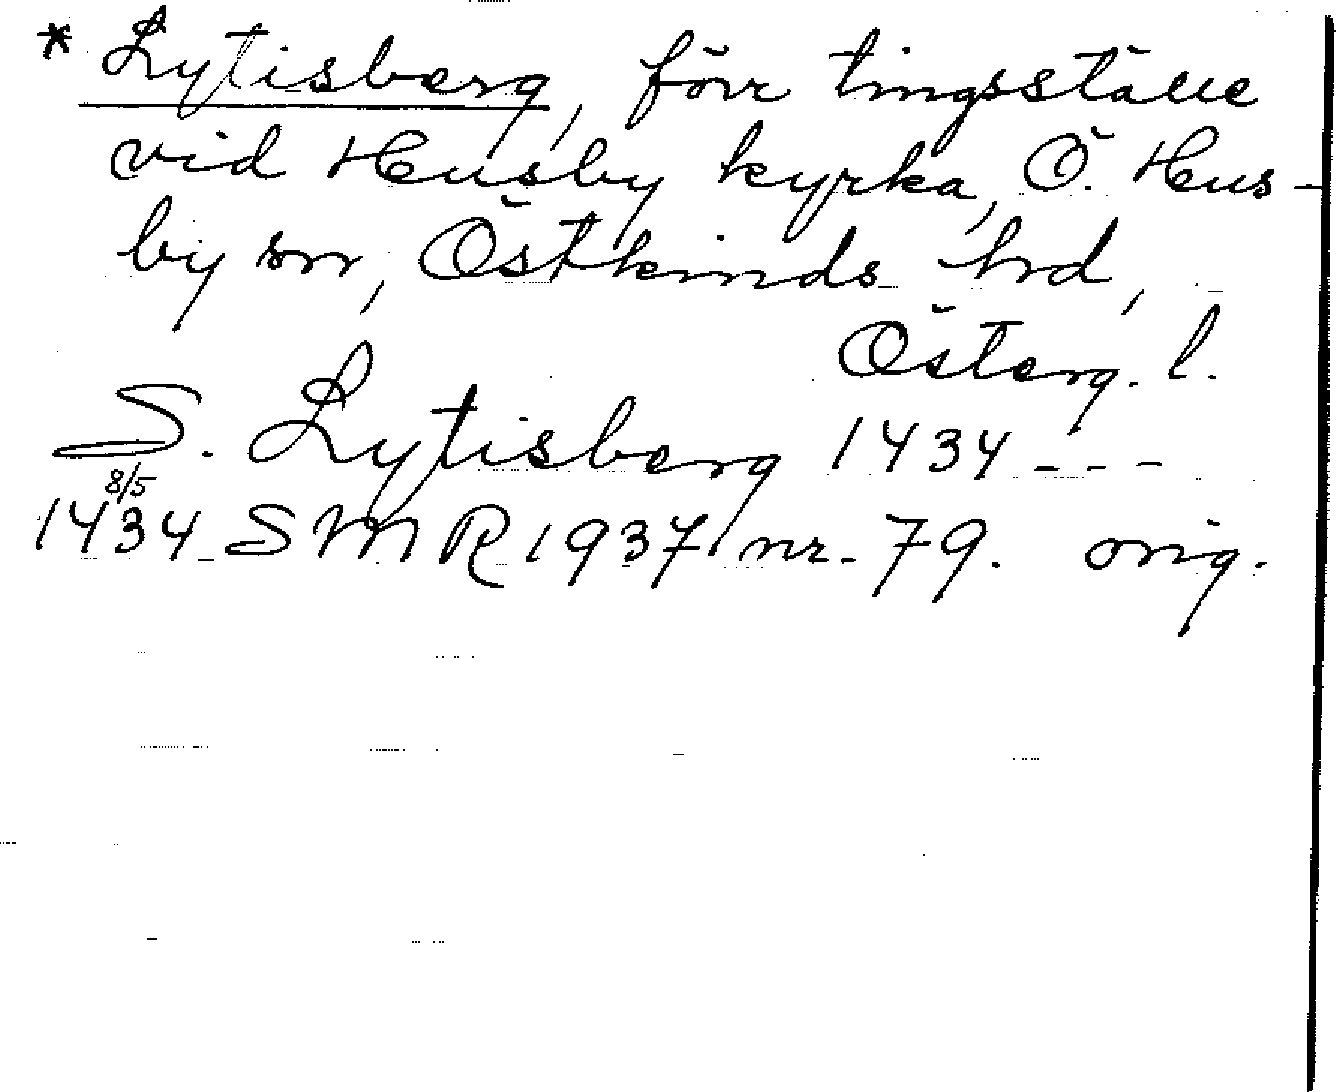 * Lytisberg, förr tingsställe
vid Husby kyrka, Ö. Hus-
by sn, Östkinds hrd,
Österg. l.
S. Lytisberg 1434 - - -
8/5
1434 SMR 1937 nr. 79. orig.